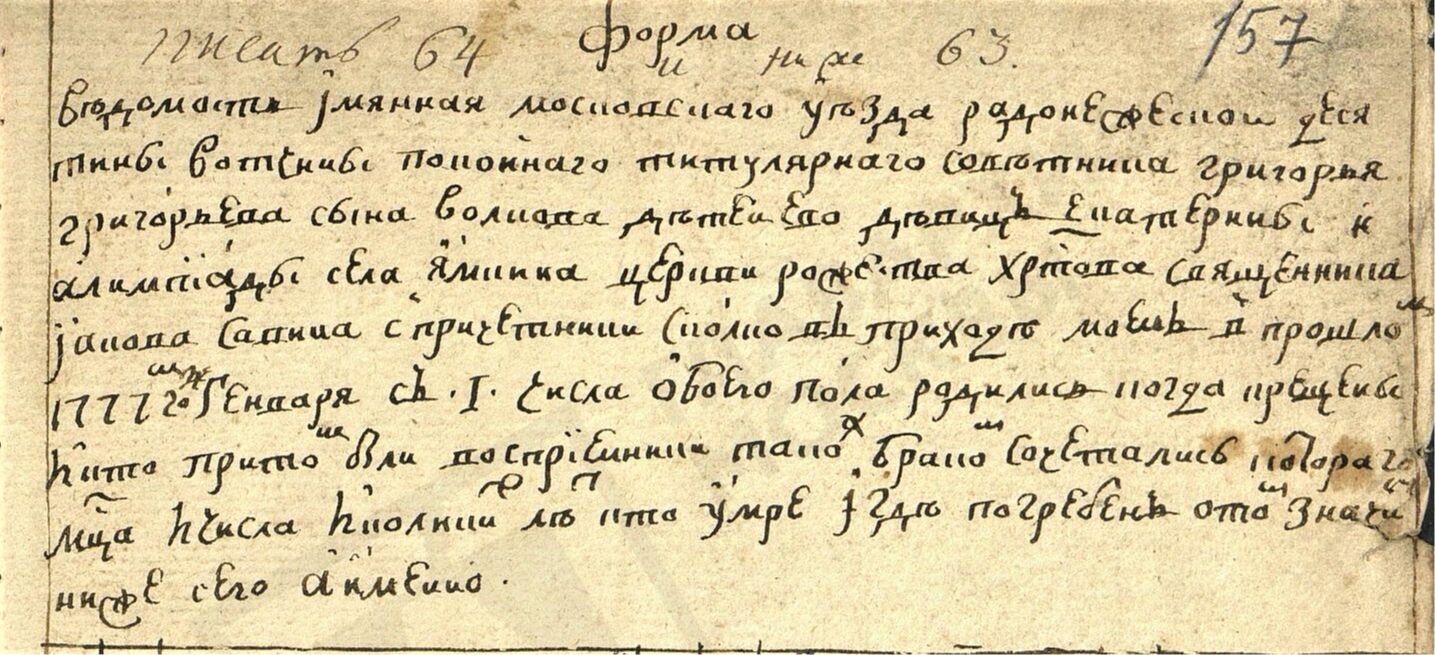 форма 157
писать 64 и ниже 63.
вѣдомость їмянная московскаго уѣзда радонежской деся
тины вотчины покойнаго титулярнаго совѣтника григорья
григорьева сына волкова дѣтей ево дѣвицъ екатерины и
алимпіады села ямкина церкви рожества хртова священника
їакова савина с причетники сколко въ приходѣ моемъ в прошло м
1777 м году генваря съ .І. числа обоего пола родились когда крещены
и кто при то м были воспріемники тако ж брако м сочетались котораго
мца и числа и коликих лѣтъ кто умре ї гдѣ погребенъ о то м значит
ниже сего а именно.